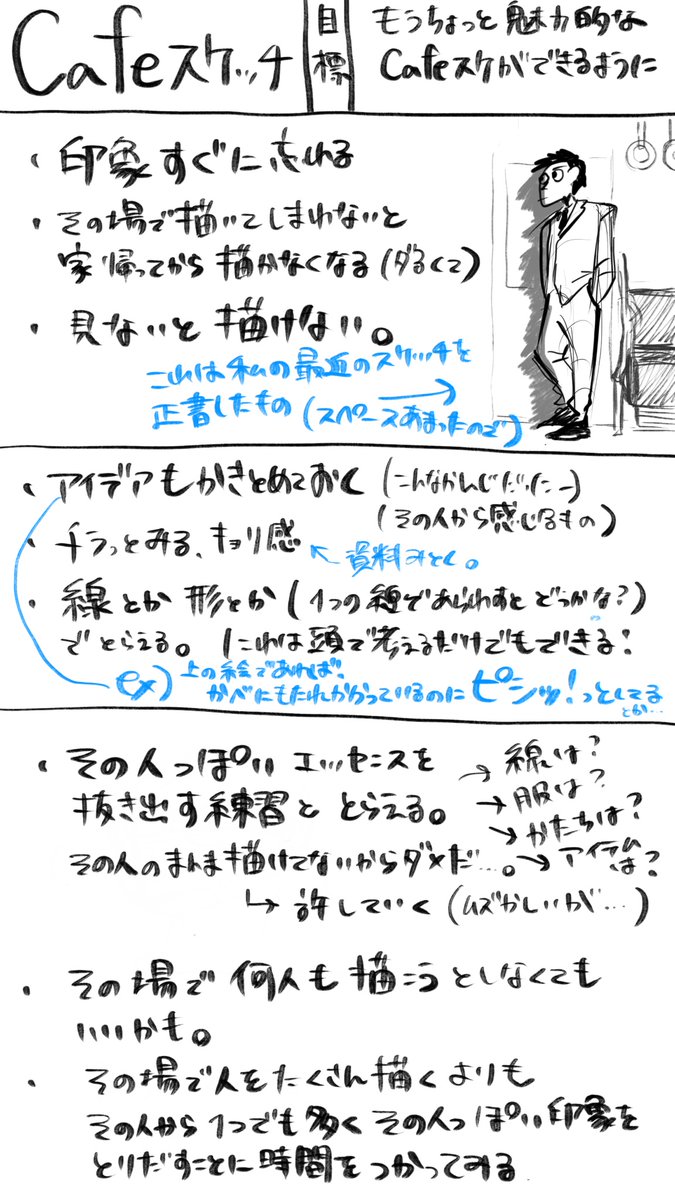 Cafeスケッチ
目標
もうちょっと魅力的な
Cafeスケができるように
・印象すぐに忘れる
・その場で描いてしまわないと
家帰ってから描かなくなる(ダるくて)
・見ないと描けない。
これは私の最近のスケッチを
正書したもの(スペースあまったので)
・アイデアもかきとめておく(こんなかんじだったー)
(その人から感じるもの)
・チラっとみる、キョリ感
←資料みとく。
・線とか形とか(1つの線であらわすとどうかな?)
でとらえる。(これは頭で考えるだけでもできる!
ex)上の絵であれば!
かべにもたれかかっているのにピシッ!っとしてる
とか…
・その人っぽいエッセンスを
抜き出す練習ととらえる。
→線は?
→服は?
→かたちは?
→アイテムは?
その人のまんま描けてないからダメだ…。
↳許していく(ムズかしいが…)
・その場で何人も描こうとしなくても
いいかも。
・その場で人をたくさん描くよりも
その人から1つでも多くその人っぽい印象を
とりだすことに時間をつかってみる